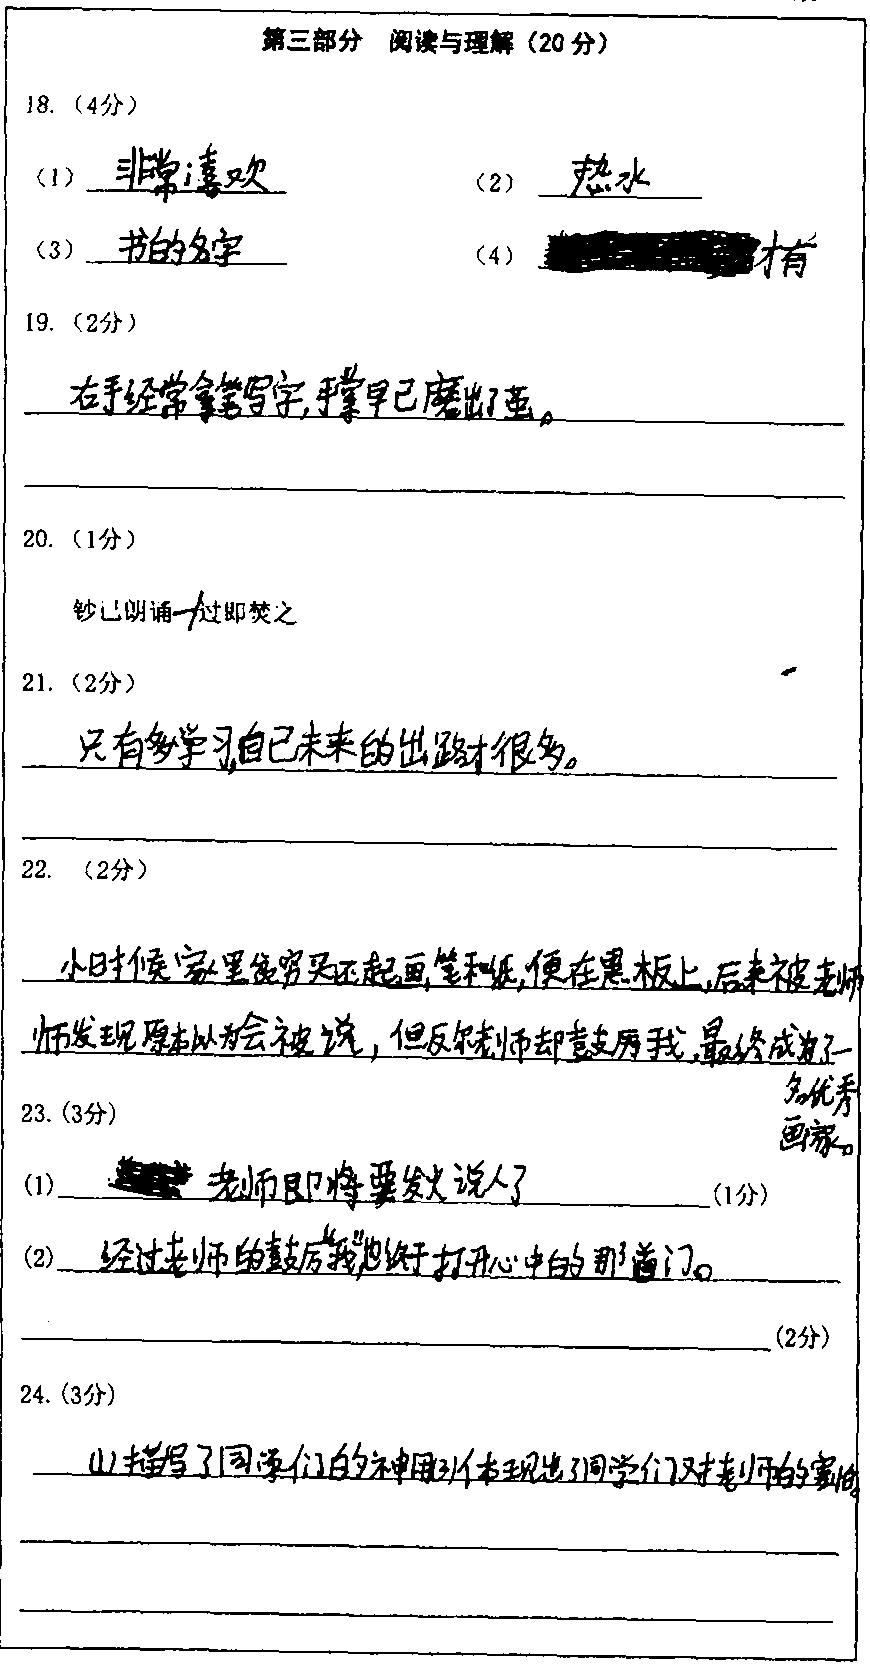 第三部分 阅读与理解（20分）
18.（4分）
（1） 非常喜欢 （2） 热水
（3） 书的名字 （4） 才有
19.（2分）
右手经常拿笔写字,手掌早已磨出了茧。
20.（1分）
钞已朗诵一/过即焚之
21.（2分）
只有多学习,自己未来的出路才很多。
22. （2分）
小时候家里很穷买不起画笔和纸,便在黑板上,后来被老师
师发现原本以为会被说，但反尔老师却鼓励我,最终成为了一
名优秀
画家。
23.(3分)
(1) 老师即将要发火说人了 (1分)
(2) 经过老师的鼓厉"我"也终于打开心中的那道门。
(2分)
24.(3分)
(1)描写了同学们的神用引体现出了同学们对老师的害怕。